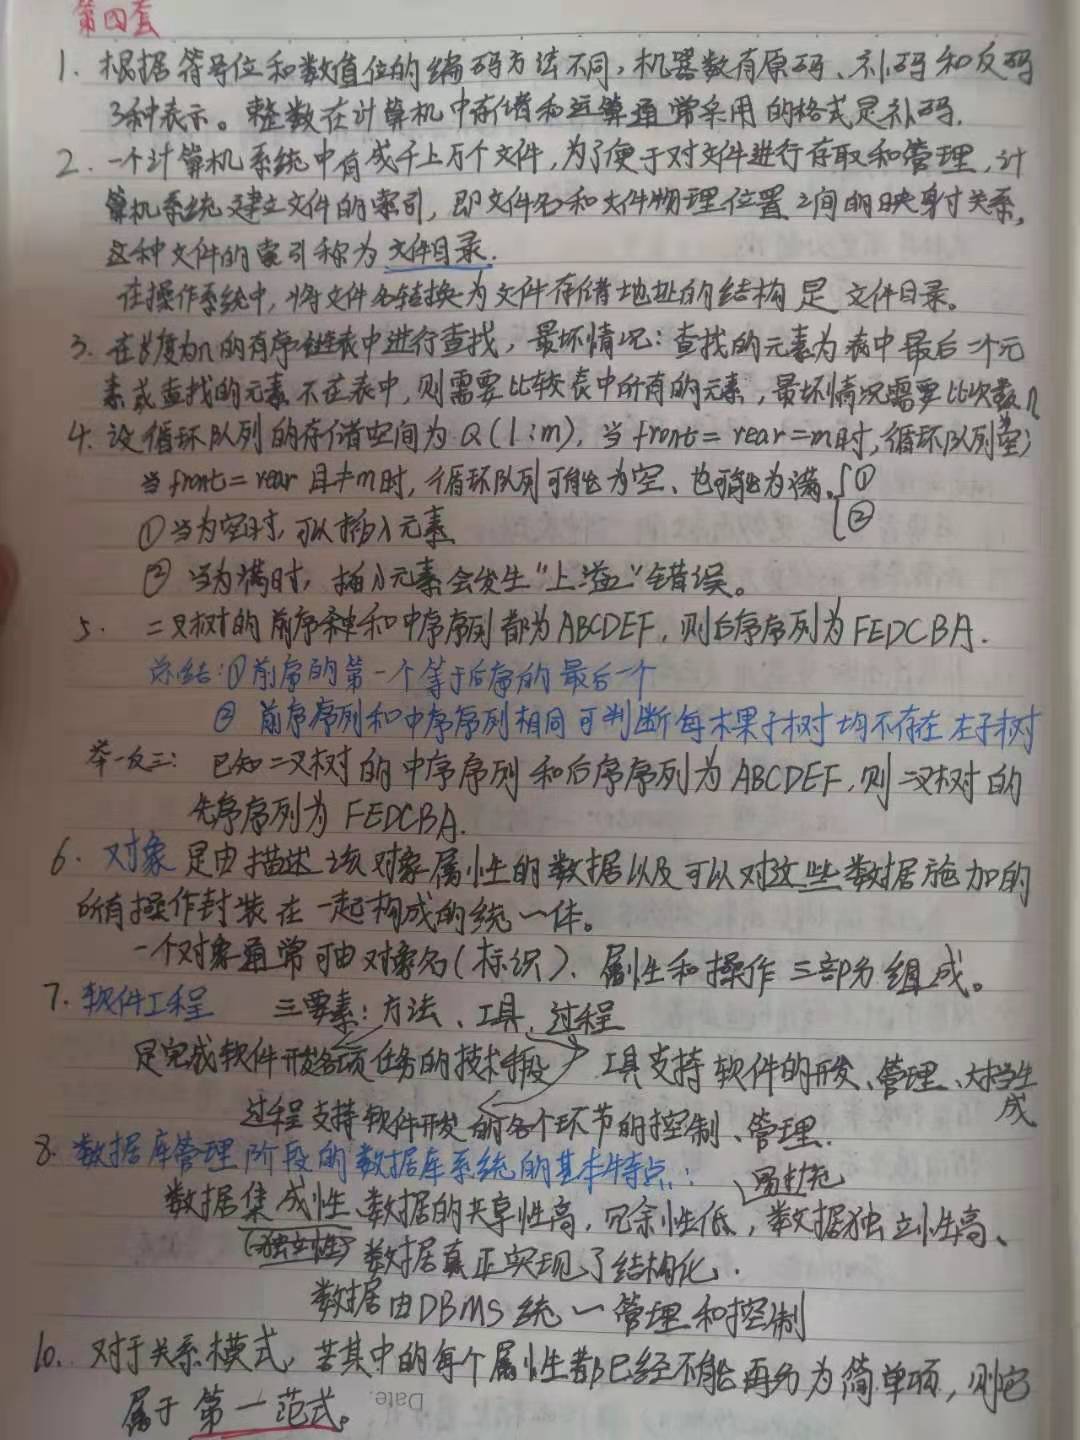 第四套
1. 根据符号位和数值位的编码方法不同，机器数有原码、补码和反码
3种表示。整数在计算机中存储和运算通常采用的格式是补码.
2. 一个计算机系统中有成千上万个文件，为了便于对文件进行存取和管理，计
算机系统建立文件的索引，即文件名和文件物理位置之间的映射关系，
这种文件的索引称为文件目录.
在操作系统中，将文件名转换为文件存储地址的结构是 文件目录。
3. 在长度为n的有序链表中进行查找，最坏情况：查找的元素为表中最后一个元
素或查找的元素不在表中，则需要比较表中所有的元素，最坏情况需要比次数n
4. 设循环队列的存储空间为Q(1:m), 当front=rear=m时，循环队列空；
当front=rear且≠m时，循环队列可能为空、也可能为满.{①
②
①当为空时，可以插入元素
② 当为满时，插入元素会发生“上溢”错误。
5. 二叉树的前序和中序序列都为ABCDEF，则后序序列为FEDCBA.
总结:①前序的第一个等于后序的最后一个
② 前序序列和中序序列相同可判断每棵子树均不存在左子树
举一反三: 已知二叉树的中序序列和后序序列为ABCDEF，则二叉树的
先序序列为FEDCBA.
6. 对象是由描述该对象属性的数据以及可以对这些数据施加的
所有操作封装在一起构成的统一体。
一个对象通常可由对象名(标识)、属性和操作三部分组成。
7. 软件工程 三要素：方法、工具、过程
是完成软件开发各项任务的技术手段 工具支持软件的开发、管理、文档生
成
过程支持软件开发的各个环节的控制、管理.
8. 数据库管理阶段的数据库系统的基本特点：
易扩充
数据集成性、数据的共享性高，冗余性低，数据独立性高、
(独立性) 数据真正实现了结构化、.
数据由DBMS统一管理和控制
10. 对于关系模式，若其中的每个属性都已经不能再分为简单项，则它
属于第一范式。
Date.